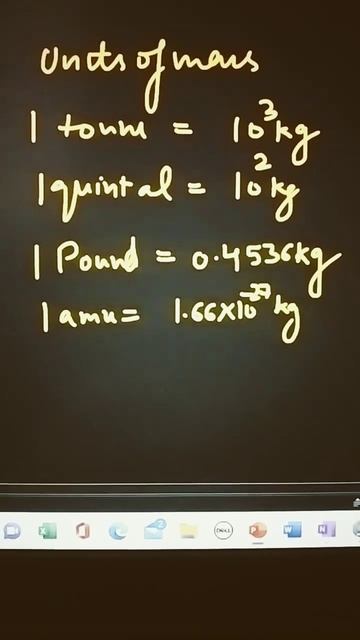 Units of mass
1 tonne = 10³ kg
1 quintal = 10² kg
1 Pound = 0.4536 kg
1 amu = 1.66×10⁻²⁷ kg
DELL
2